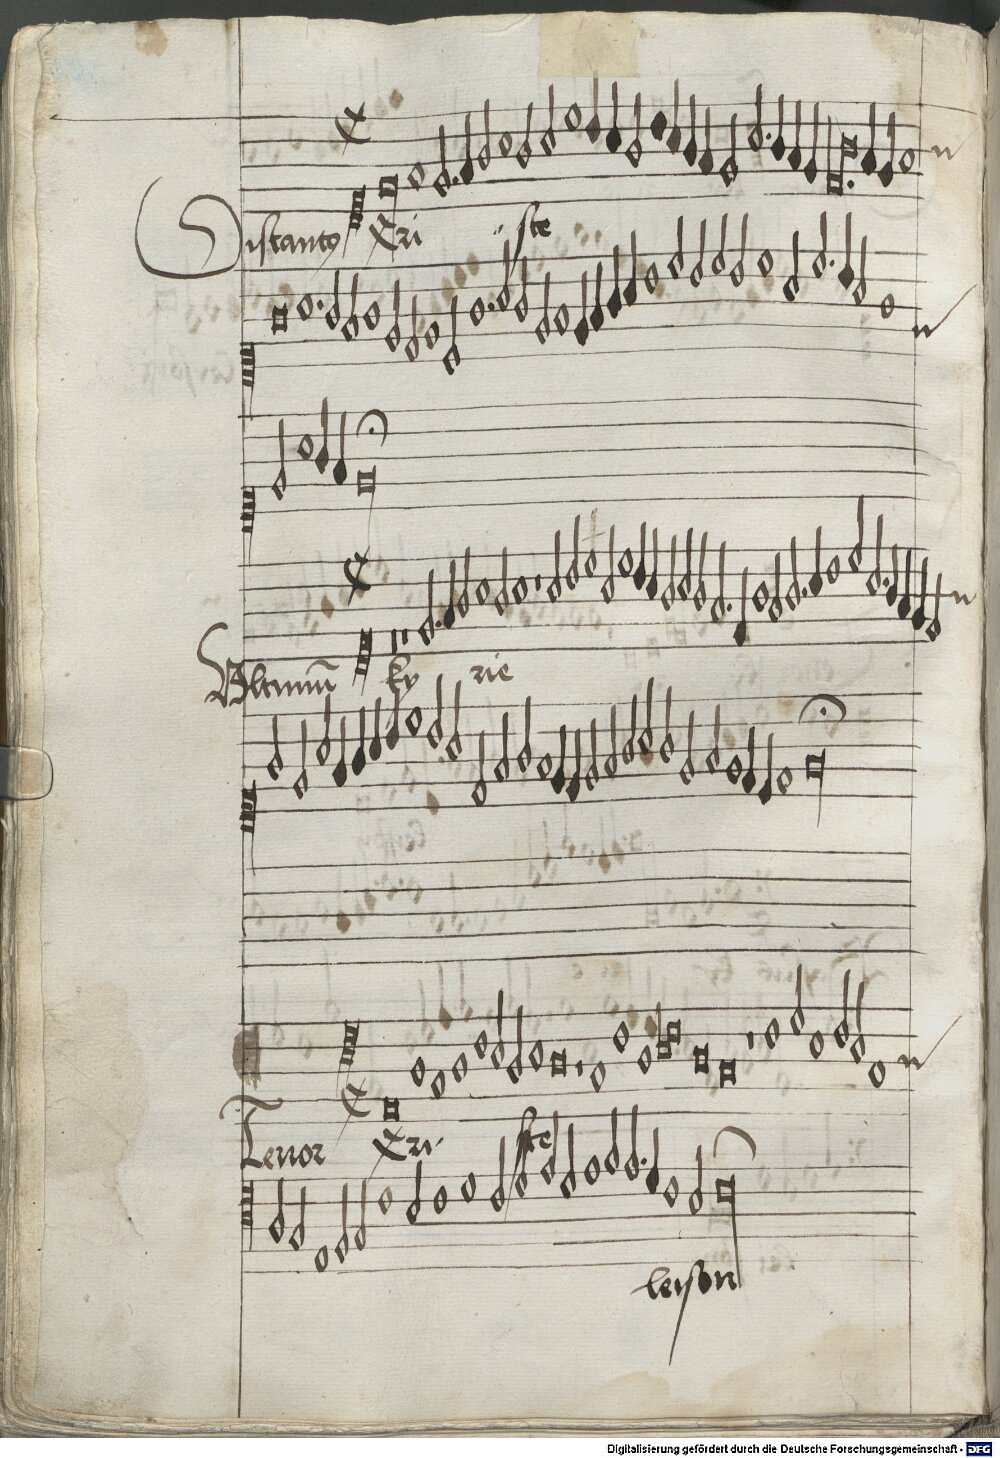 Xri ste
Ultimū ky rie
Tenor Xri ste
leison
Digitalisierung gefördert durch die Deutsche Forschungsgemeinschaft - DFG